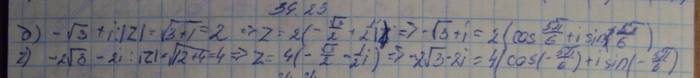 34.23
б) -√3 + i: |Z| = √(3+1) = 2 => Z = 2(-√3/2 + 1/2 i) => -√3+i = 2(cos 5π/6 + i sin 5π/6)
г) -2√3 - 2i: |Z| = √(12+4) = 4 => Z = 4(-√3/2 - 1/2 i) => -2√3-2i = 4(cos(-5π/6) + i sin(-5π/6)